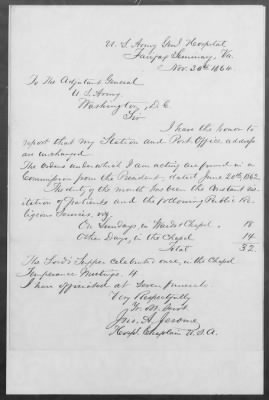 U. S. Army Genl. Hospital,
Fairfax Seminary, Va.
Nov. 30th 1864.
To the Adjutant General
U. S. Army
Washington, D. C.
Sir
I have the honor to
report that my Station and Post Office address
are unchanged.
The orders under which I am acting are found in a
Commission from the President, dated June 20th, 1862.
The duty of the month has been the constant vis-
itation of patients and the following Public Re-
ligious Services, viz.
On Sundays, in Wards & Chapel, 18
Other Days, in the Chapel 14
Total 32
The Lord's Supper Celebrated once, in the Chapel
Temperance Meetings. 4
I have officiated at seven funerals.
Very Respectfully
Yr. Ob. Servt.
Jas. A. Jerome,
Hospl. Chaplain U.S.A.